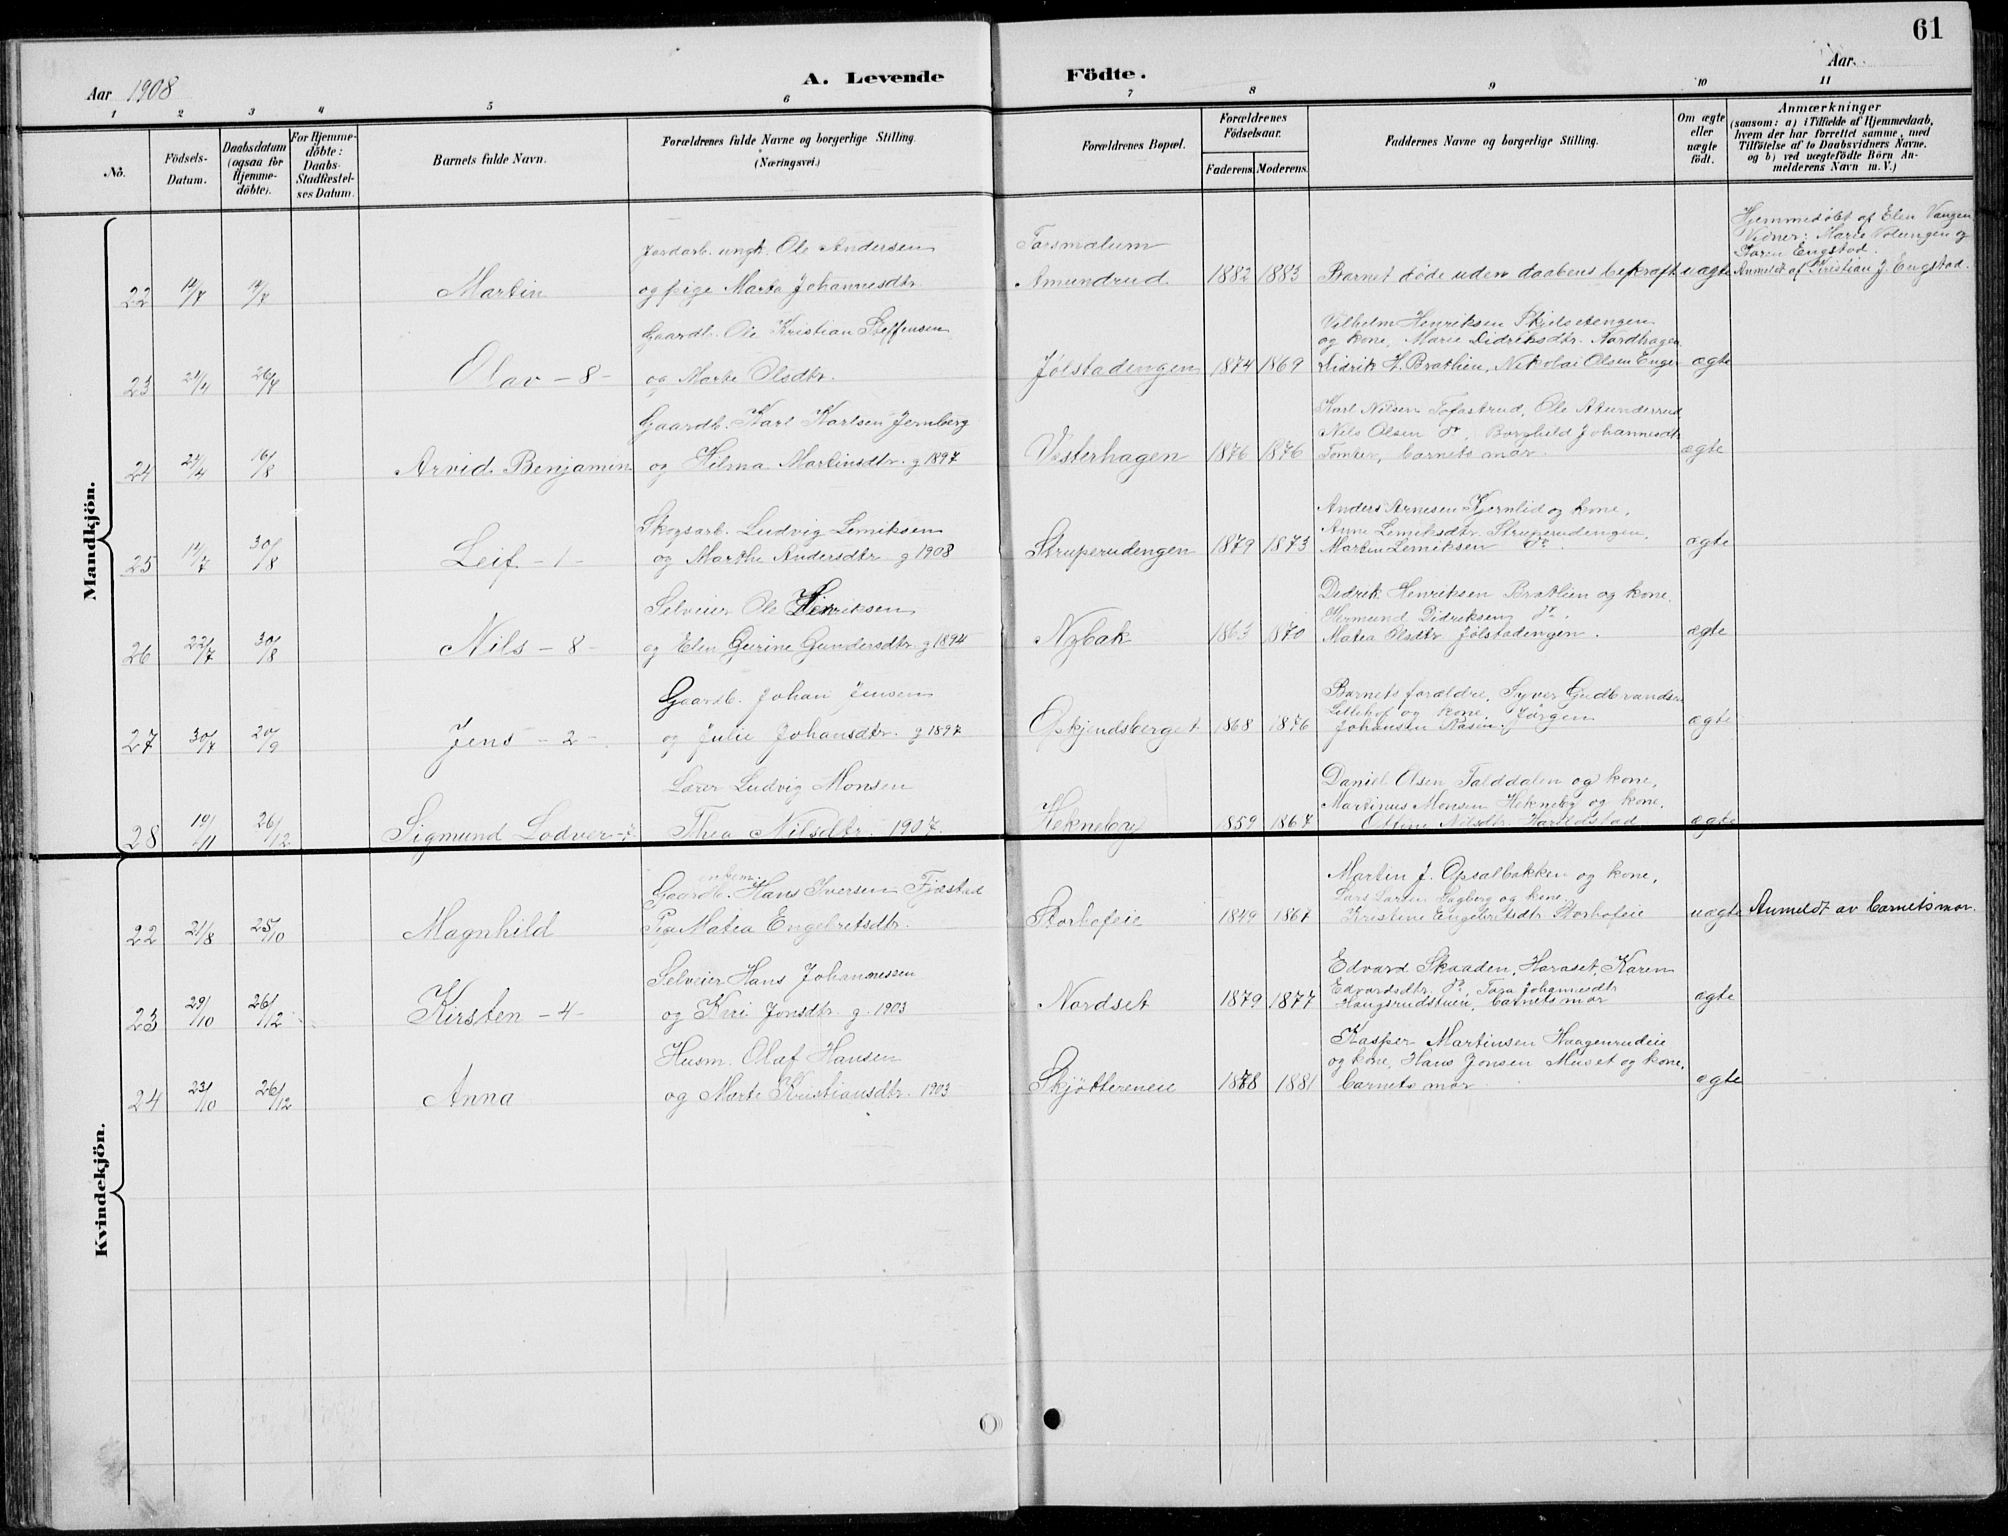 61
Aar 1908
A. Levende Födte.
Aar
1 2 3 4 5 6 7 8 9 10 11
No.
Födsels-Datum.
Daabsdatum (ogsaa for Hjemme-döbte).
For Hjemme-döbte: Daabs-Stadfestel-ses Datum.
Barnets fulde Navn.
Forældrenes fulde Navne og borgerlige Stilling. (Næringsvei.)
Forældrenes Bopæl.
Forældrenes Födselsaar.
Faderens. Moderens.
Faddernes Navne og borgerlige Stilling.
Om ægte eller uægte födt.
Anmærkninger (saasom: a) i Tilfælde af Hjemmedaab, hvem der har forrettet samme, med Tilföielse af to Daabsvidners Navne. og b) ved uægtefödte Börn An-melderens Navn m. V.)
Mandkjön.
Hjemmedøbt af Elen Vangen
Vidner: Marie Volungen og
Karen Engstad.
Jordarb. ungk. Ole Andersen
22 Martin og pige Marta Johannesdtr. Amundrud 1882 1883 Barnet døde uden daabens bekraft uægte Anmeldt af Kristian J. Engstad.
Gaardb. Ole Kristian Steffensen
Vilhelm Henriksen Skjelsetengen
og kone, Marie Didriksdtr. Nordhagen
23 21/4 26/4 Olav - 8 - og Marte Olsdtr. Jølstadengen 1874 1869 Didrik H. Brathen, Nikolai Olsen Enger ægte
Gaardb. Karl Karlsen Jernberg
Karl Nilsen Tofastrud, Ole
Nils Olsen do, Borghild Johannesdtr
24 21/4 16/8 Arvid Benjamin og Hilma Martinsdtr. g 1897 Vesterhagen 1876 1876 Tomter, barnets mor. ægte
Skogsarb. Ludvig Lemiksen
Anders Arnesen Kjernlid og kone,
Anne Lemiksdtr. Struperudengen,
25 12/7 30/8 Leif - 1 - og Marthe Andersdtr. g 1908 Struperudengen 1879 1873 Martin Lemiksen do. ægte
Selveier Ole Henriksen
Didrik Henriksen Brathen og kone.
Hermund Didriksen do.
26 22/7 30/8 Nils - 8 - og Elen Gurine Gundersdtr. g 1894 Nybak 1863 1870 Matea Olsdtr. Jølstadengen. ægte
Gaardb. Johan Jensen
Barnets forældre, Syver Gudbrandsen
Lillehof og kone, Jørgen
27 30/7 20/9 Jens - 2 - og Julie Johansdtr. g 1897 Opskjendsberget 1868 1876 Johansen Næsen ægte
Lærer Ludvig Monsen
Daniel Olsen Talddalen og kone,
Martinus Monsen Hekneby og kone.
28 19/11 26/12 Sigmund Lodver - Thea Nilsdtr. 1907. Hekneby 1859 1867 Ottine Nilsdtr. Haroldstad ægte
Kvindekjön.
enkem.
Gaardb. Hans Iversen Fjæstad
Martin J. Opsalbakken og kone,
Lars Larsen Sagberg og kone
22 21/8 25/10 Magnhild Pige Matea Engebretsdtr. Storhofeie 1849 1867 Kristine Engebretsdtr Storhofeie uægte Anmeldt av barnets mor.
Selveier Hans Johannessen
Edvard Skaaden, Haraset, Karen
Edvardsdtr. do, Tora Johannesdtr
23 29/10 26/12 Kirsten - 4 - og Kari Jonsdtr. g. 1903 Nordset 1879 1877 Haugsrudstuen, barnets mor ægte
Husm. Olaf Hansen
Kasper Martinsen Haagenrudeie
og kone, Hans Jonsen Muset og kone,
24 23/10 26/12 Anna og Marte Kristiansdtr. 1903 Skjøttereneie 1878 1881 barnets mor ægte